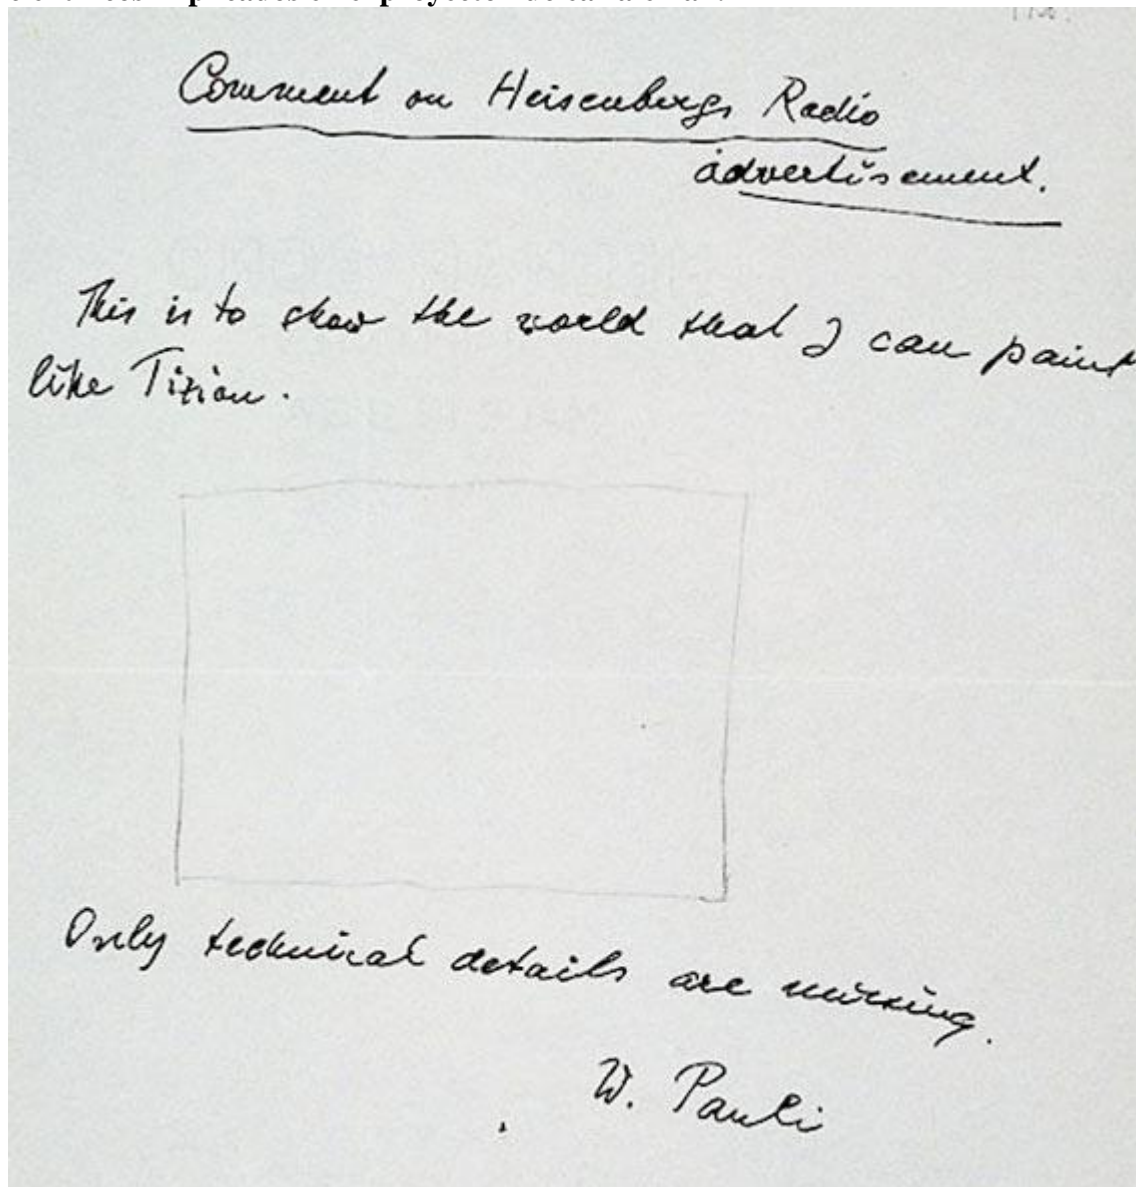 Comment on Heisenbergs Radio
advertisement.
This is to show the world that I can paint
like Tizian.
Only technical details are missing.
W. Pauli